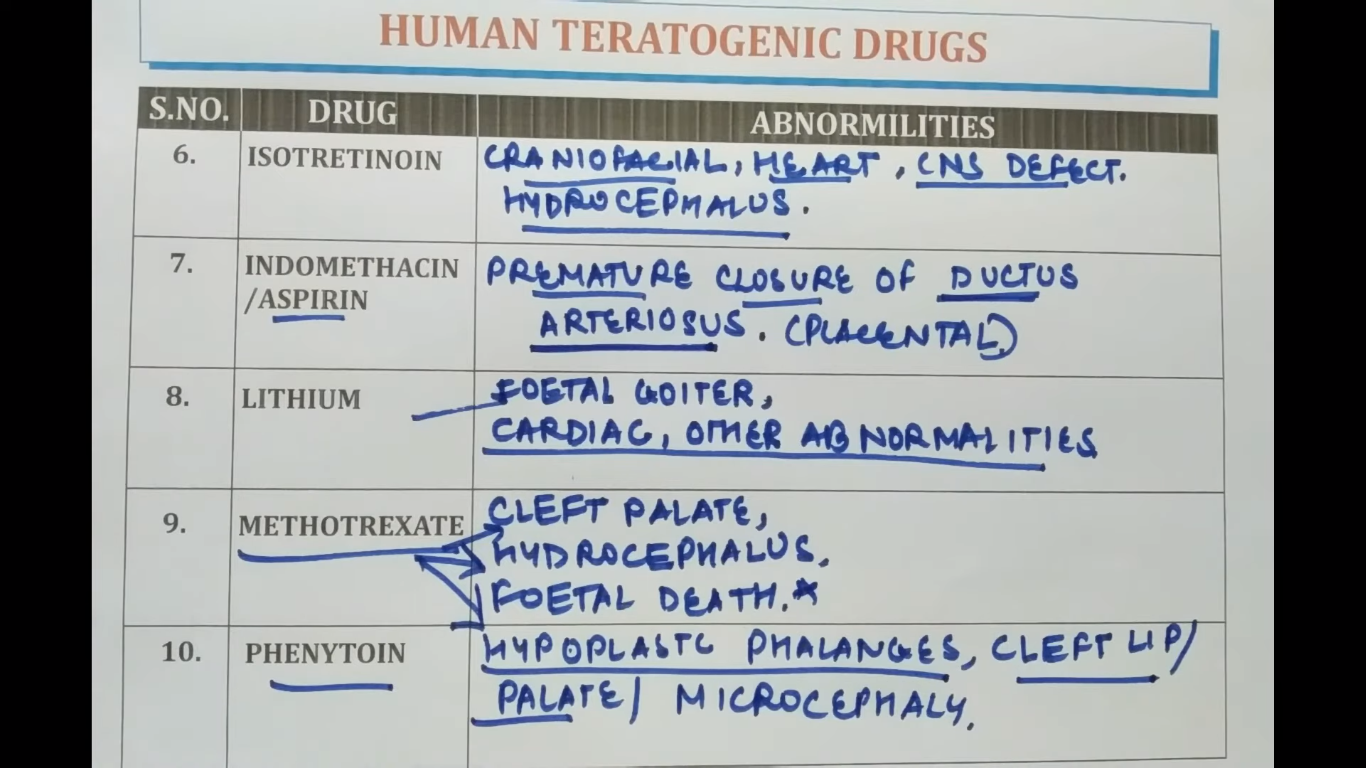 HUMAN TERATOGENIC DRUGS
S.NO. DRUG ABNORMILITIES
6. ISOTRETINOIN CRANIOFACIAL, HEART, CNS DEFECT.
HYDROCEPHALUS.
7. INDOMETHACIN PREMATURE CLOSURE OF DUCTUS
/ASPIRIN ARTERIOSUS. (PLACENTAL)
8. LITHIUM FOETAL GOITER,
CARDIAC, OTHER ABNORMALITIES
9. METHOTREXATE CLEFT PALATE,
HYDROCEPHALUS.
FOETAL DEATH.*
10. PHENYTOIN HYPOPLASTC PHALANGES, CLEFT LIP/
PALATE/ MICROCEPHALY.